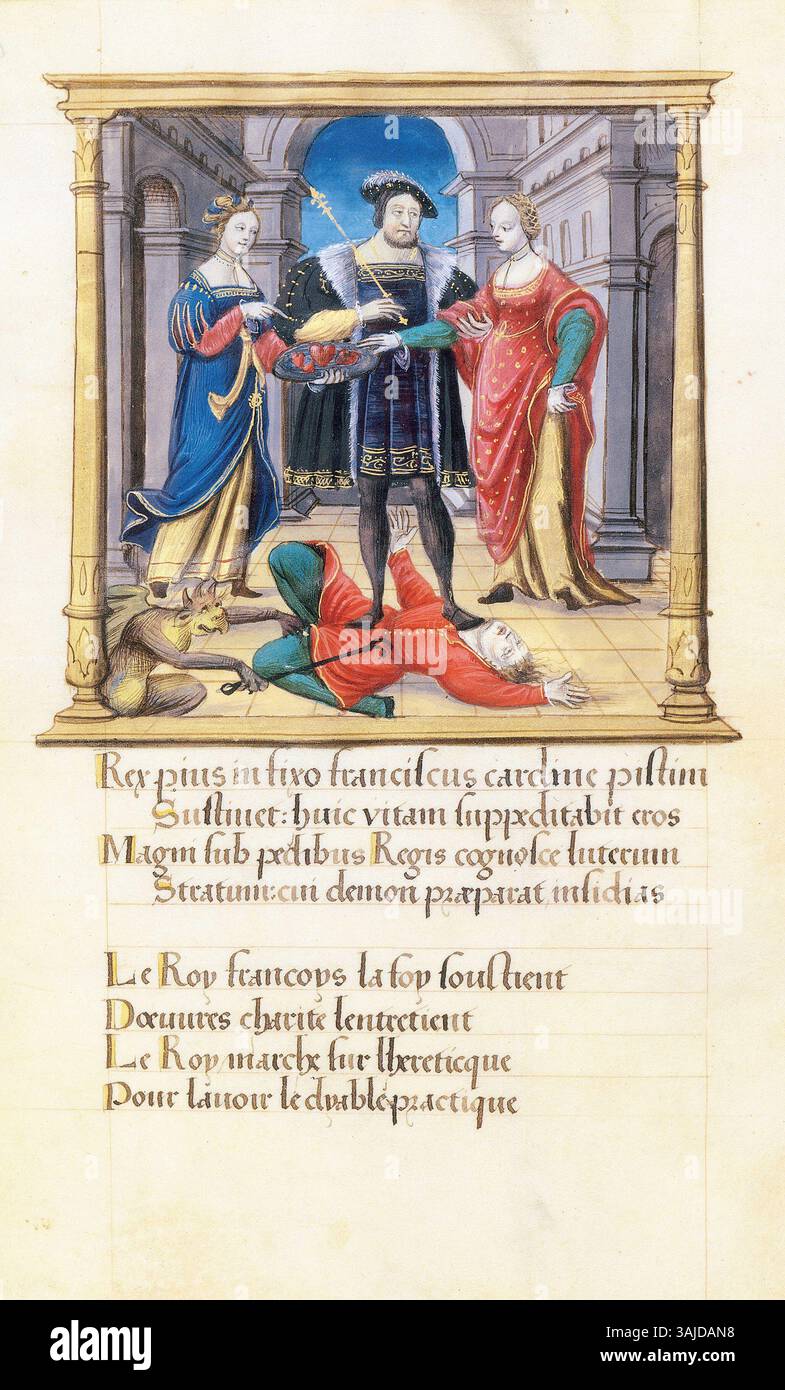 Rex pius in fixo franciscus cardine pistim
Sustinet: huic vitam suppeditabit eros
Magni sub pedibus Regis cognosce luterum
Stratum: cui demon præparat insidias
Le Roy francoys la foy soustient
Dœuures charite lentretient
Le Roy marche sur lhereticque
Pour lauoir le dyable practique
alamy
alamy
alamy
Image ID: 3AJDAN8
www.alamy.com